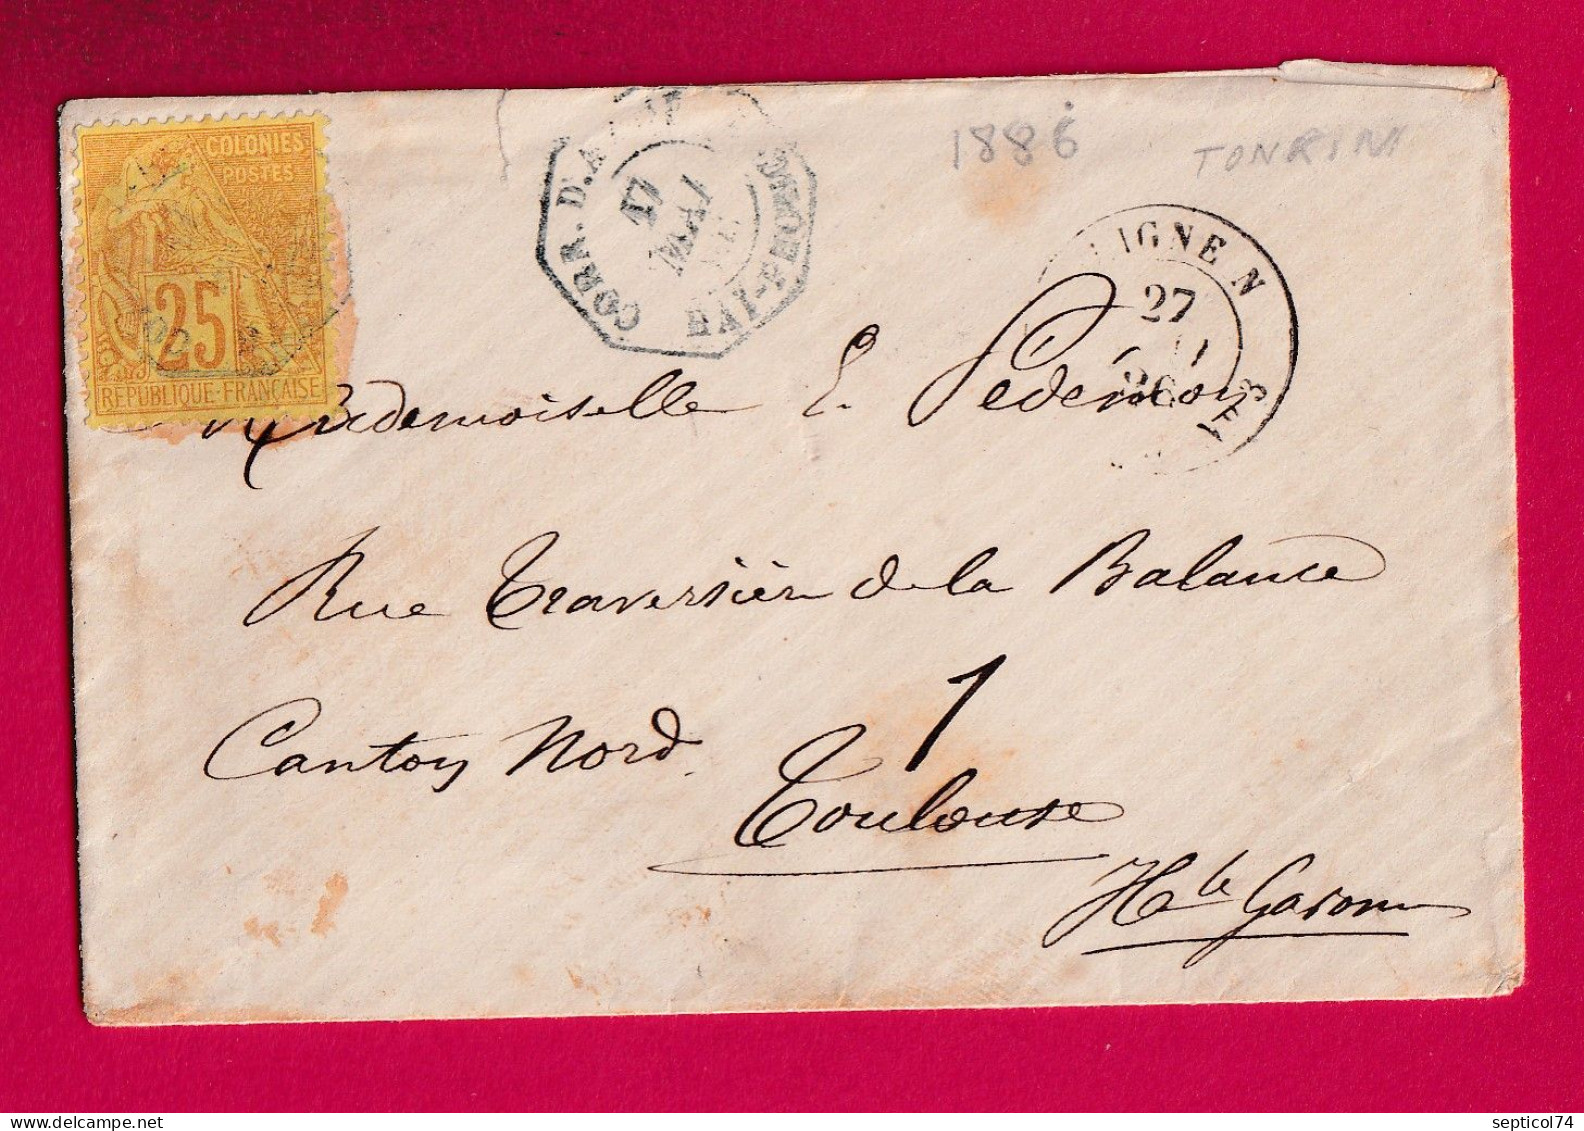 COLONIES
POSTES
25
REPUBLIQUE FRANÇAISE
CORR. D.
17
MAI
HAI-PHONG
1886
TONKIN
LIGNE N
27
86
Mademoiselle E.
Rue Traversière de la Balance
Canton Nord
1
Toulouse
Hte Garonne
septicol74